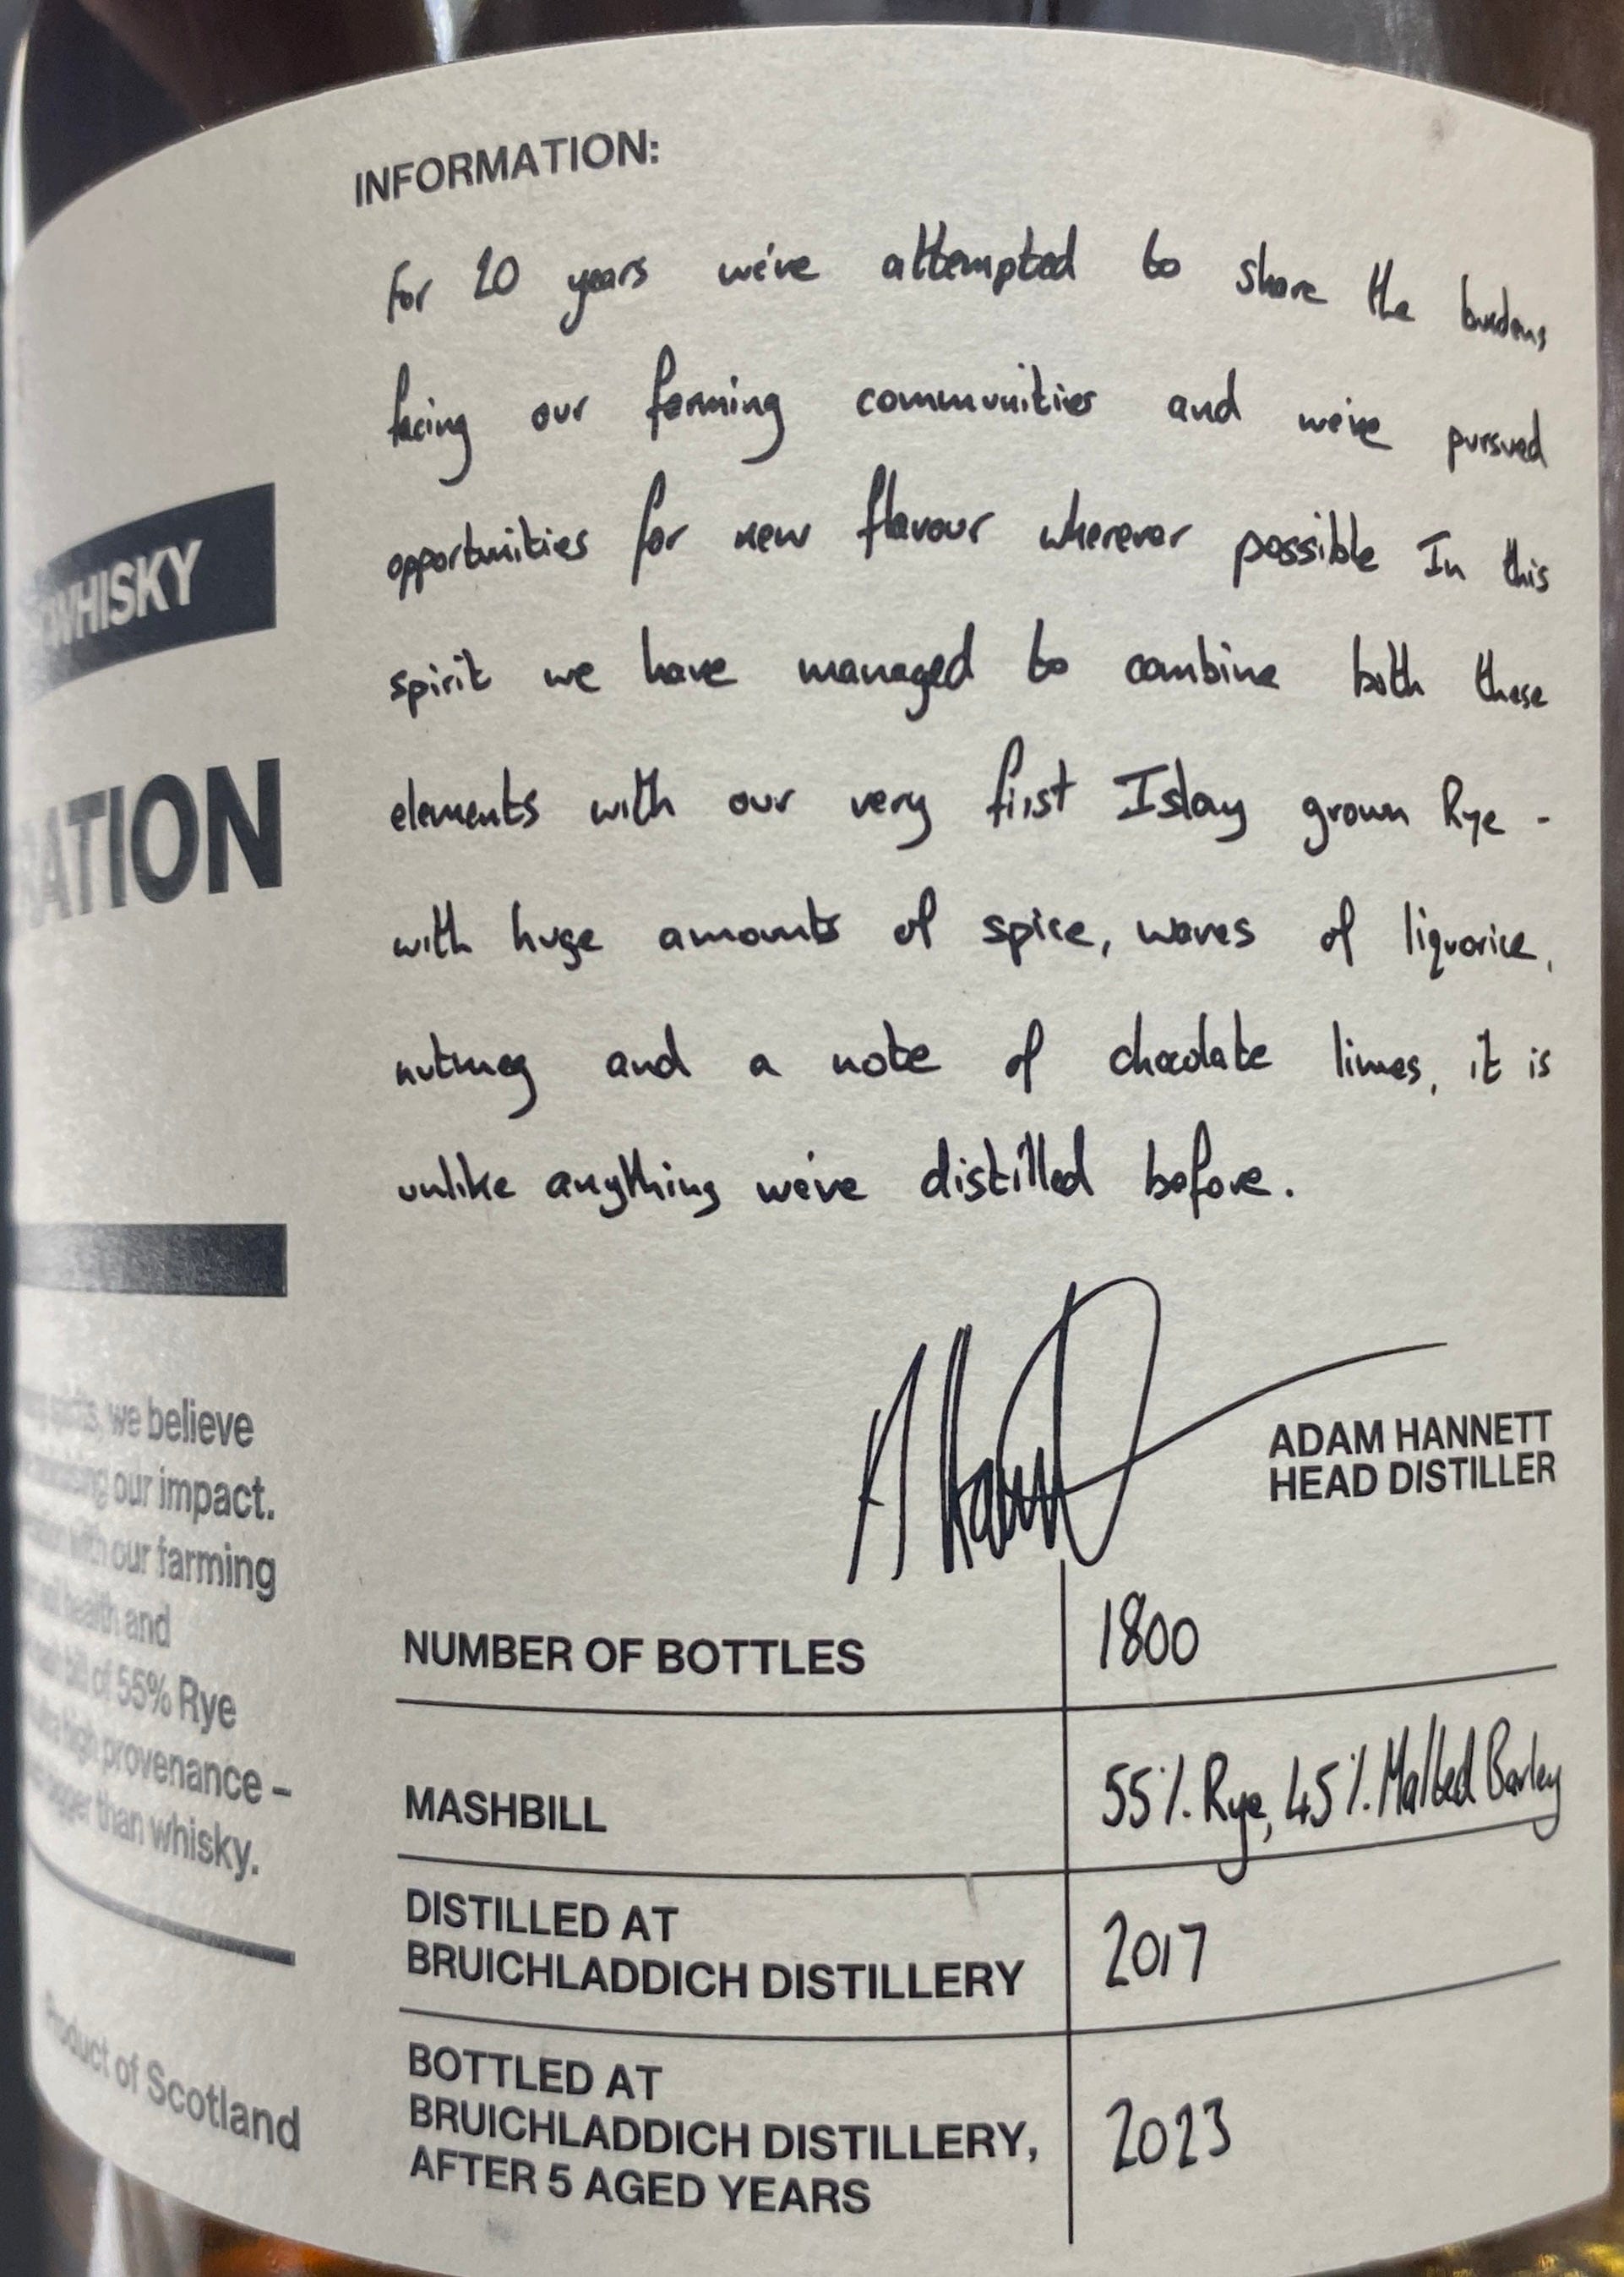 INFORMATION:
For 20 years we've attempted to share the burdens
facing our farming communities and we've pursued
opportunities for new flavour wherever possible In this
spirit we have managed to combine both these
elements with our very first Islay grown Rye -
with huge amounts of spice, waves of liquorice,
nutmeg and a note of chocolate limes, it is
unlike anything we've distilled before.
A Hannett
ADAM HANNETT
HEAD DISTILLER
NUMBER OF BOTTLES 1800
MASHBILL 55% Rye, 45% Malted Barley
DISTILLED AT
BRUICHLADDICH DISTILLERY 2017
BOTTLED AT
BRUICHLADDICH DISTILLERY,
AFTER 5 AGED YEARS 2023
WHISKY
ATION
we believe
our impact.
with our farming
health and
bill of 55% Rye
high provenance –
than whisky.
Product of Scotland